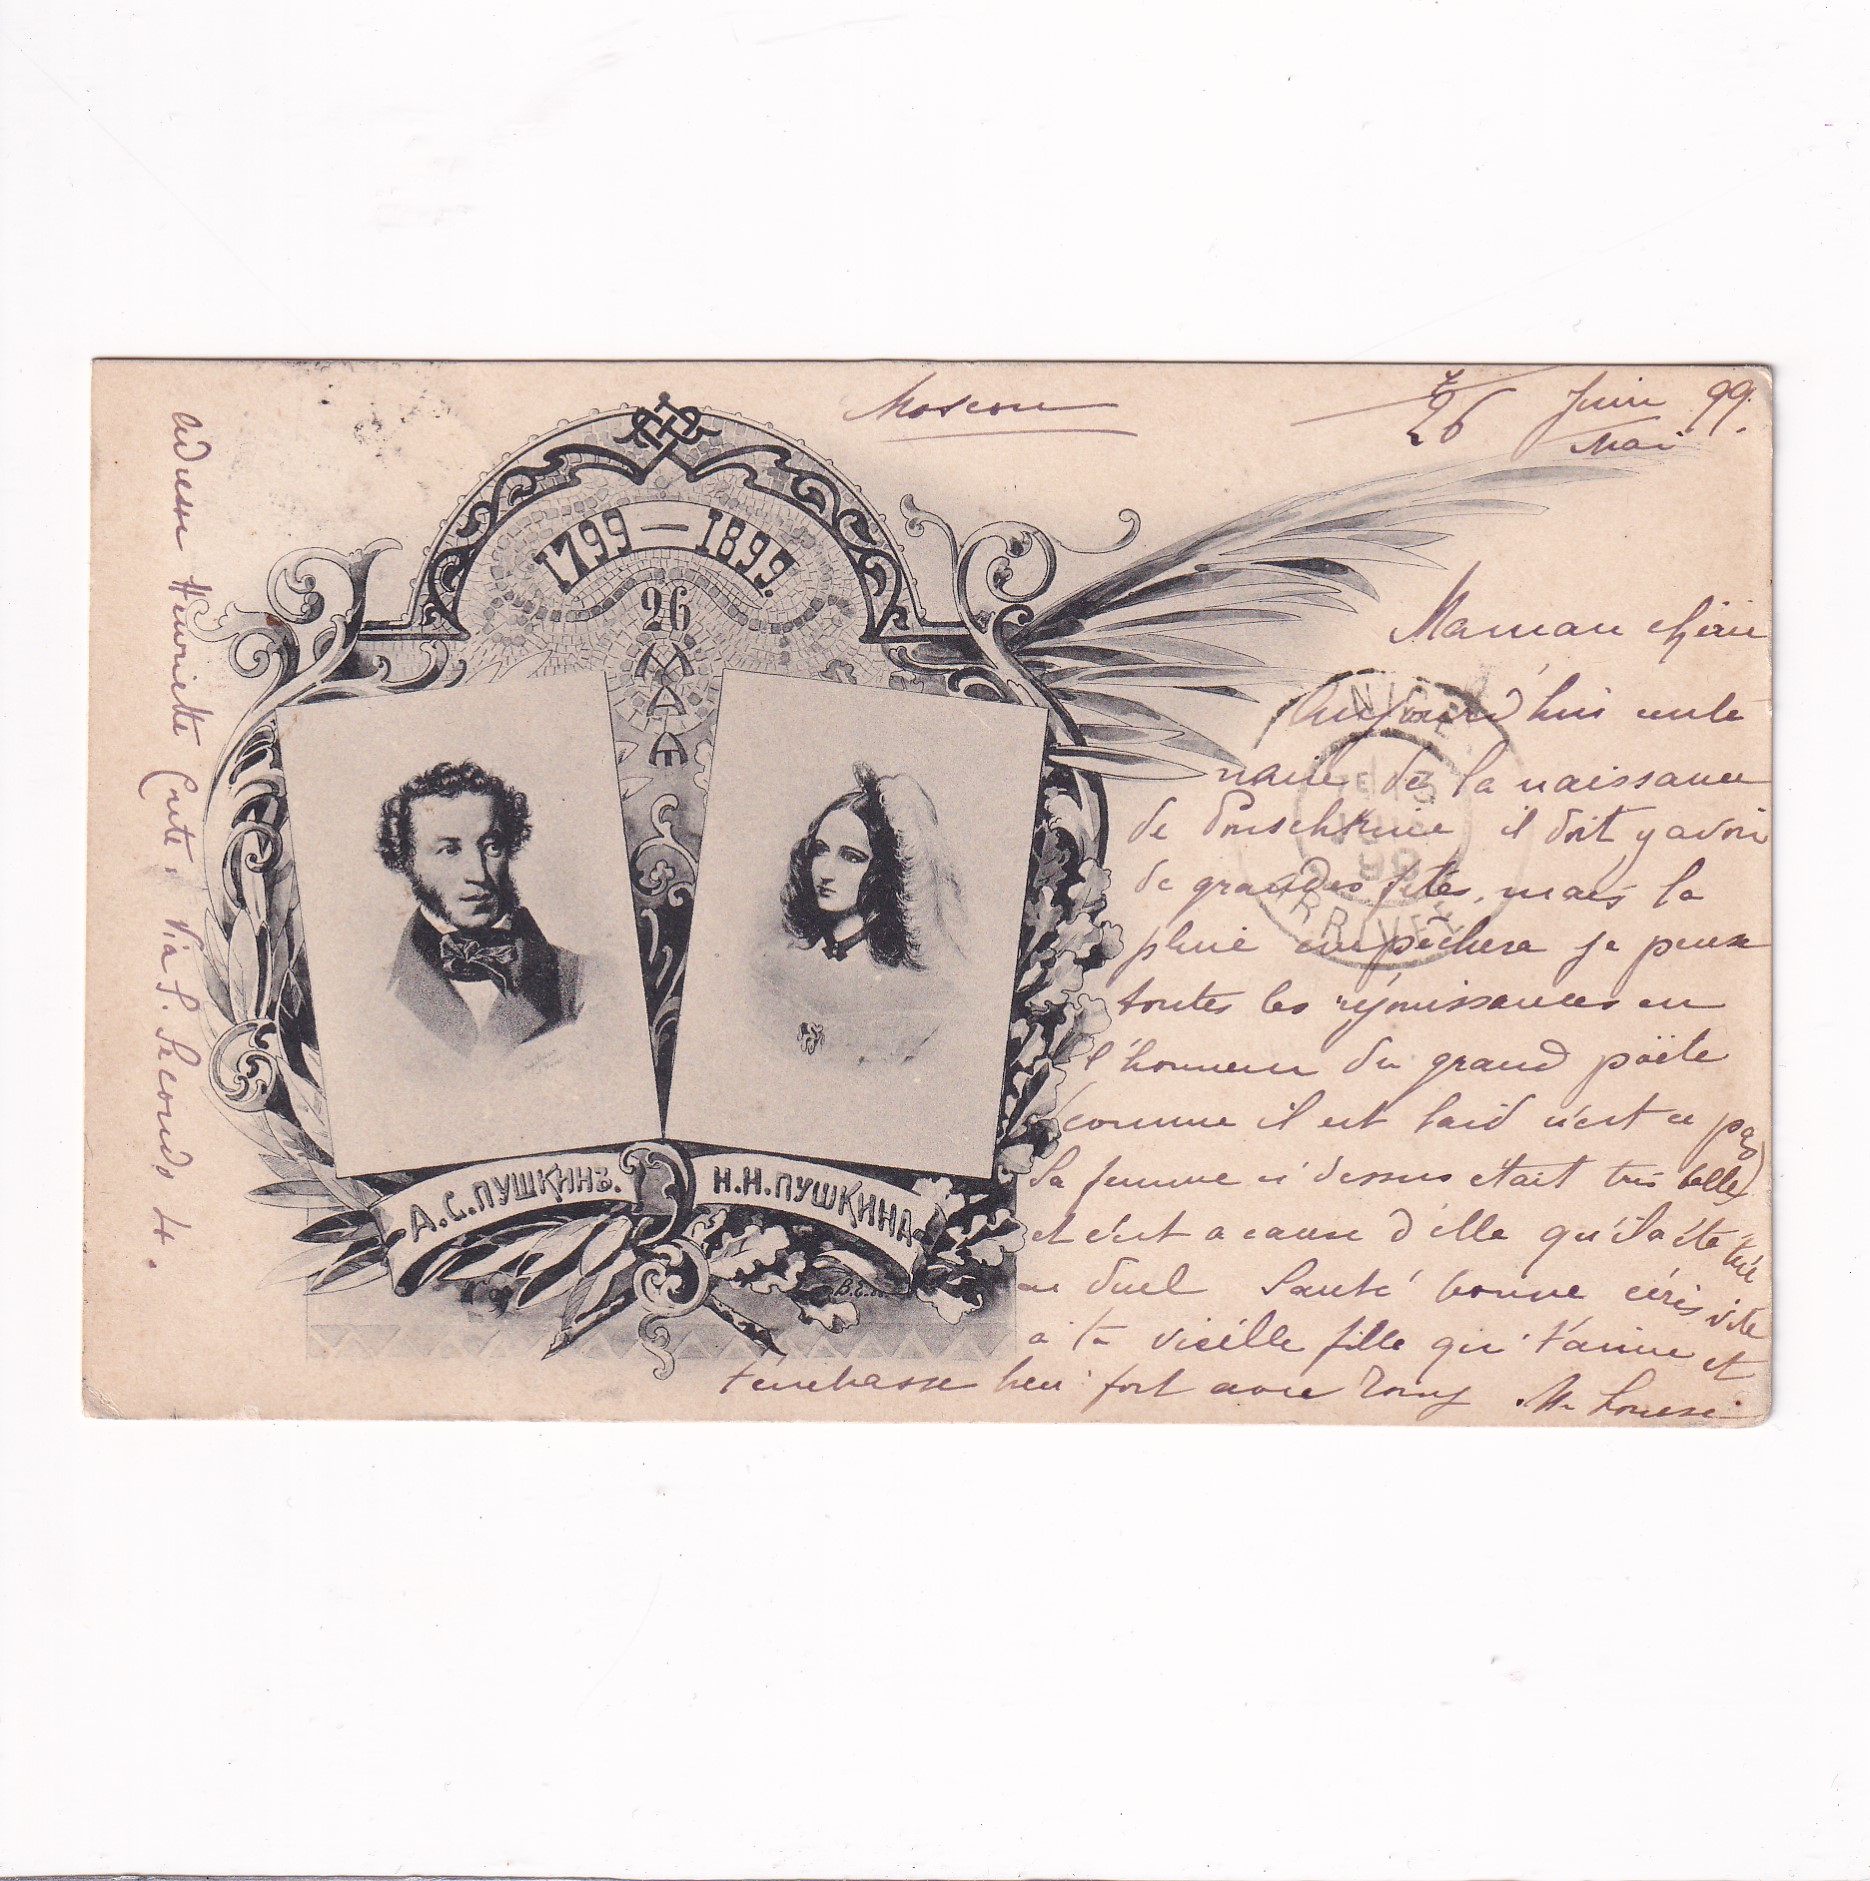 Moscou
7 Juin 99.
26 Mai
1799 — 1899.
26
МАЯ
А.С.ПУШКИНЪ.
Н.Н.ПУШКИНА
Maman chérie
Aujourd'hui cente
naire de la naissance
de Pouschkine il doit y avoir
de grandes fêtes, mais la
pluie empêchera je pense
toutes les réjouissances en
l'honneur du grand poëte
(comme il est laid n'est ce pas)
Sa femme ci dessus était très belle
et c'est a cause d'elle qu'il a été tué
en duel Santé bonne écris vite
à ta vieille fille qui t'aime et
t'embrasse bien fort avec Romy M. Louise
adresse Henriette Via S. Secondo 4.
NICE
ARRIVÉE